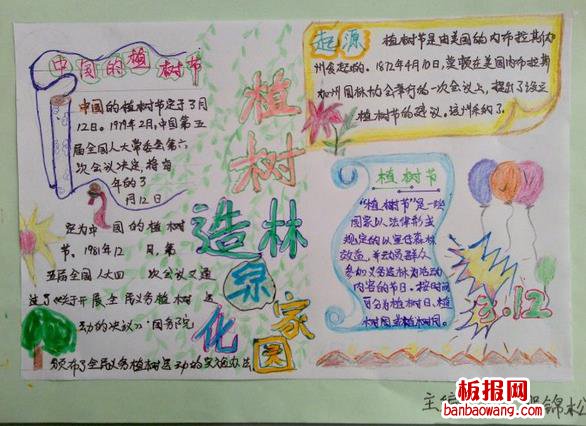 中国的植树节
中国的植树节定于3月
12日。1979年2月,中国第五
届全国人大常委会第六
次会议决定,将每
年的3
月12日
定为中国的植树
节。1981年12月,第
五届全国人大四次会议又通
过了《关于开展全民义务植树运
动的决议》。国务院
颁布了全民义务植树运动的实施办法
植树
造林
绿
化
家
园
起源
植树节是由美国的内布拉斯加
州发起的。1872年4月10日,莫顿在美国内布拉斯
加州园林协会举行的一次会议上,提出了设立
植树节的建议。该州采纳了
植树节
"植树节"是一些
国家以法律形式
规定的以宣传森林
效益,并动员群众
参加义务造林为活动
内容的节日。按时间
可分为植树日、植
树周或植树月。
3.12
主编
锦松
板报网
banbaowang.com